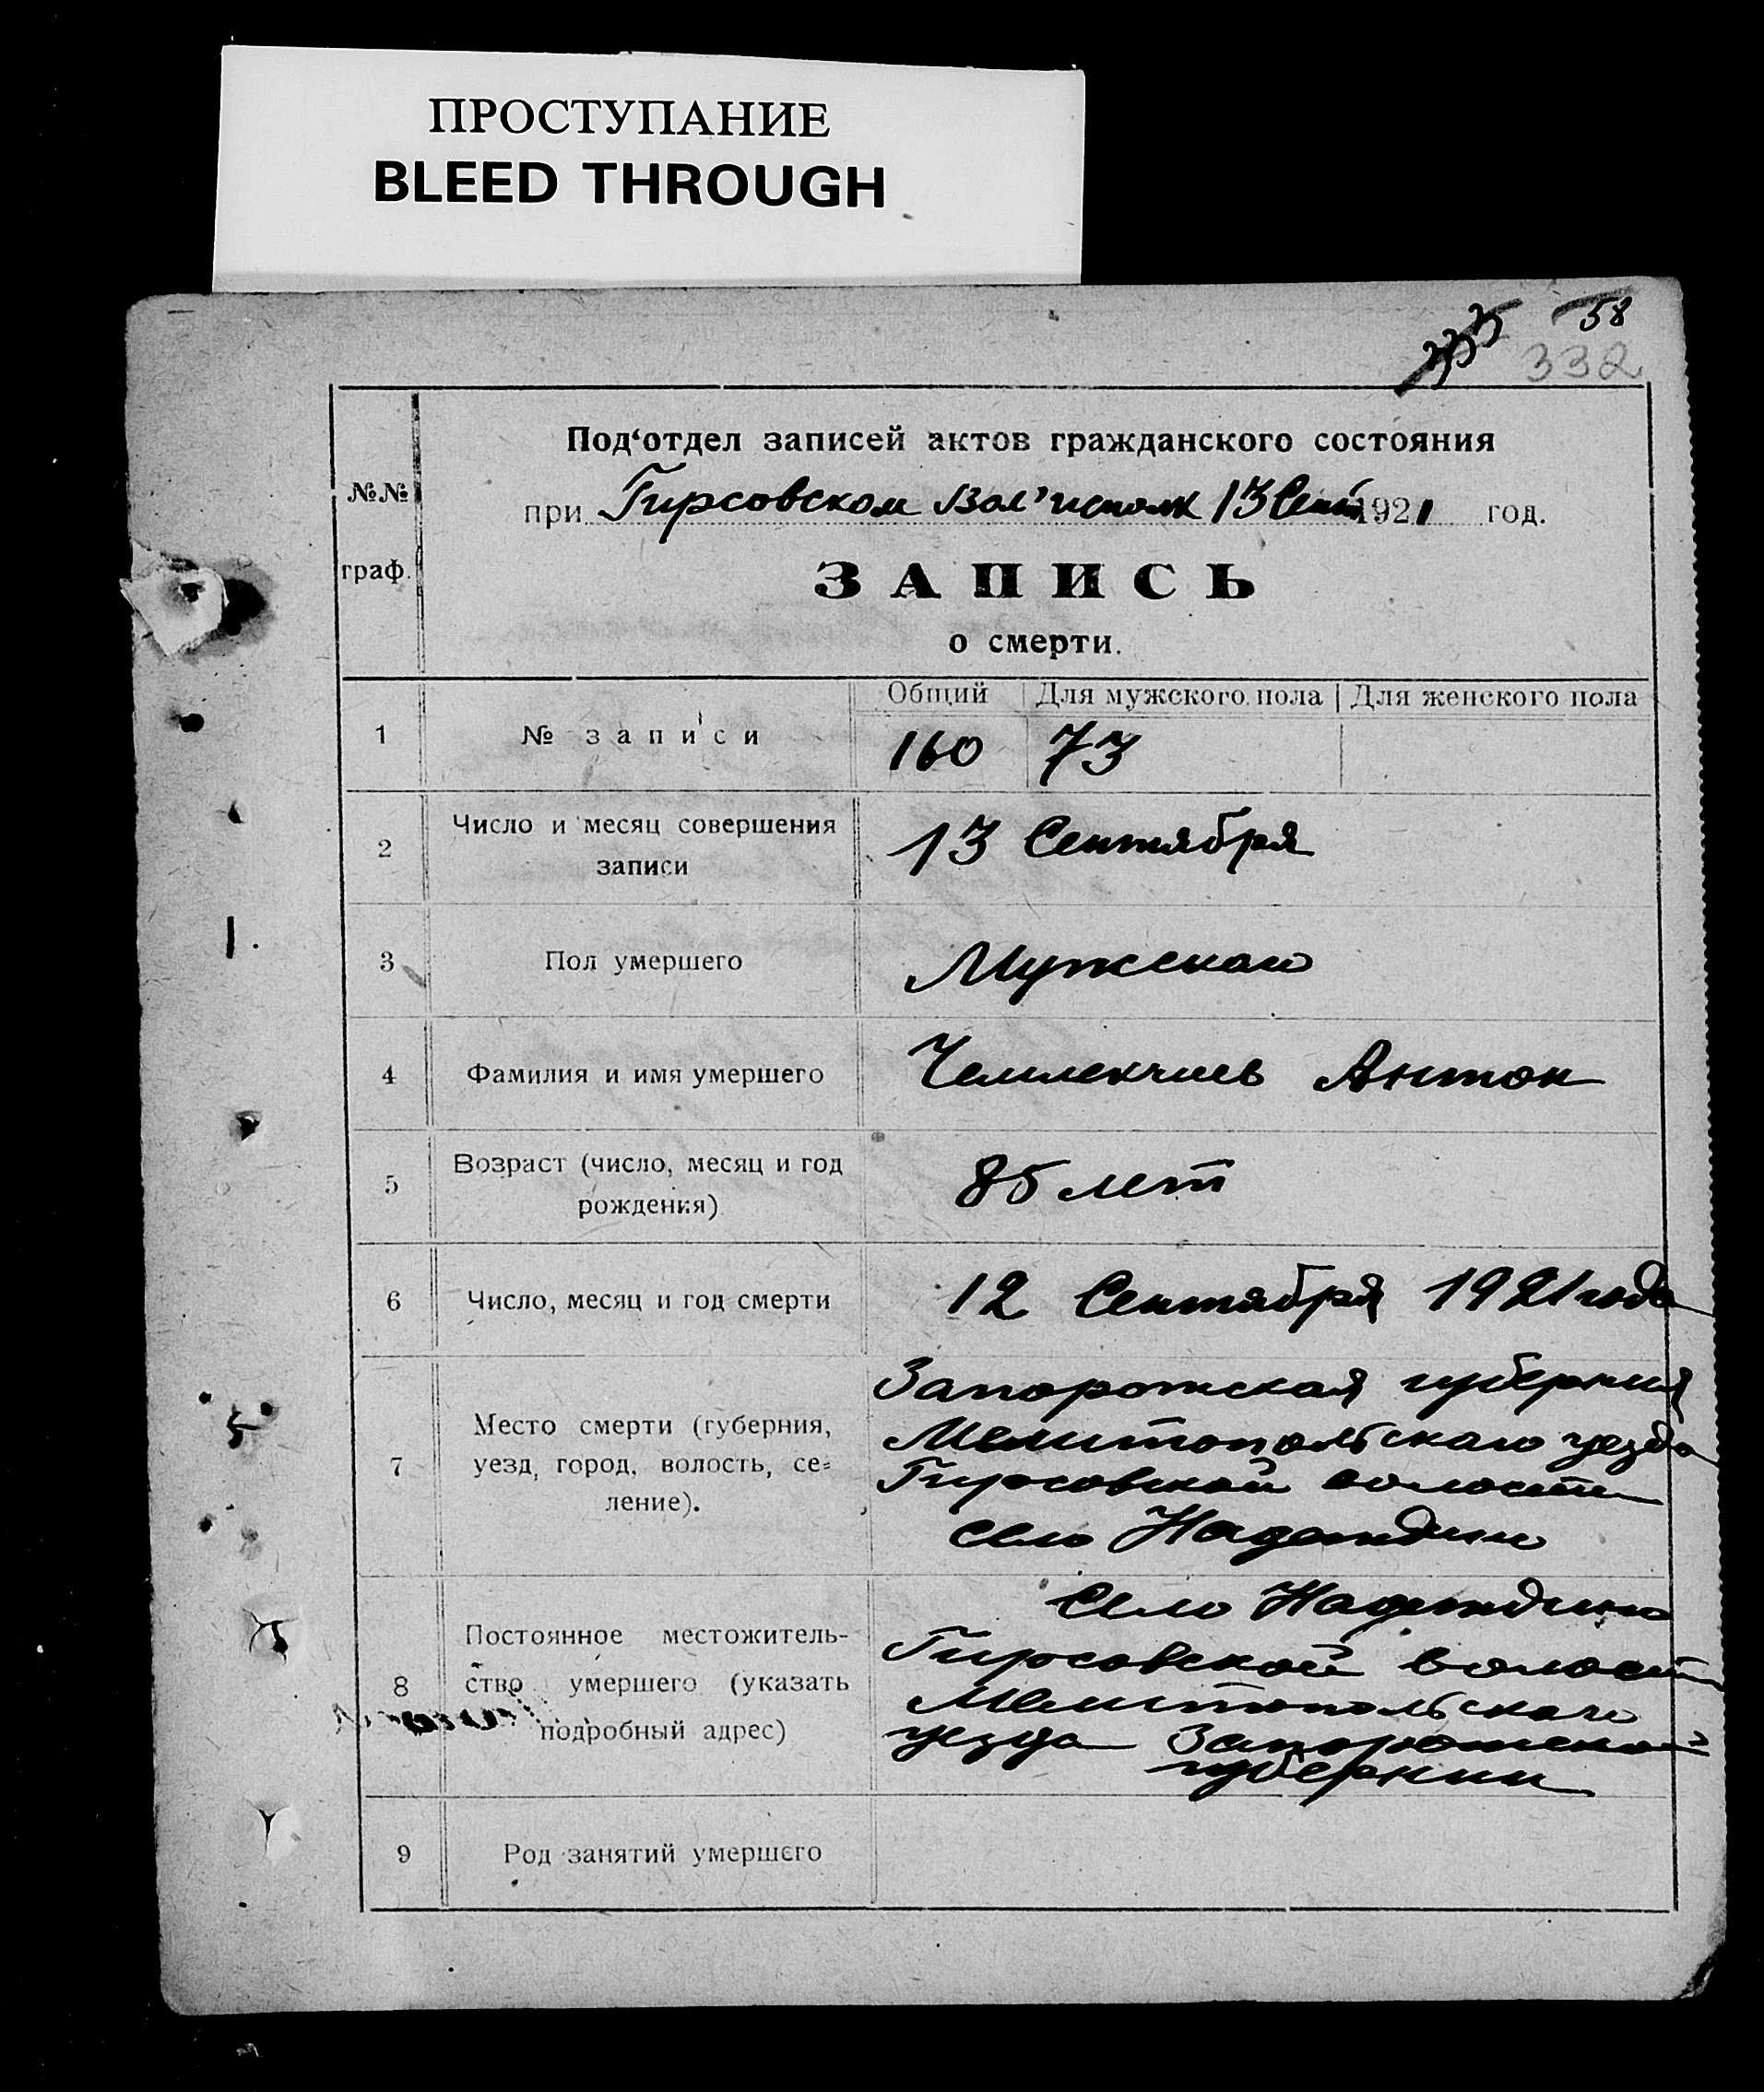 ПРОСТУПАНИЕ
BLEED THROUGH
335 58
332
№№
граф.
Под‘отдел записей актов гражданского состояния
при Гирсовском Вол’исполк 13 Сент 1921 год.
ЗАПИСЬ
о смерти.
Общий Для мужского пола Для женского пола
1 № записи 160 73
2 Число и месяц совершения
записи
13 Сентября
3 Пол умершего Мужского
4 Фамилия и имя умершего Чемлекчиев Антон
5 Возраст (число, месяц и год
рождения)
85 лет
6 Число, месяц и год смерти 12 Сентября 1921 года
7 Место смерти (губерния,
уезд, город, волость, се=
ление).
Запорожская губерния
Мелитопольскаго уезда
Гирсовской волости
село Надеждино
8 Постоянное местожитель-
ство умершего (указать
подробный адрес)
Село Надеждино
Гирсовской волости
Мелитопольскаго
уезда Запорожской
губернии
9 Род занятий умершего